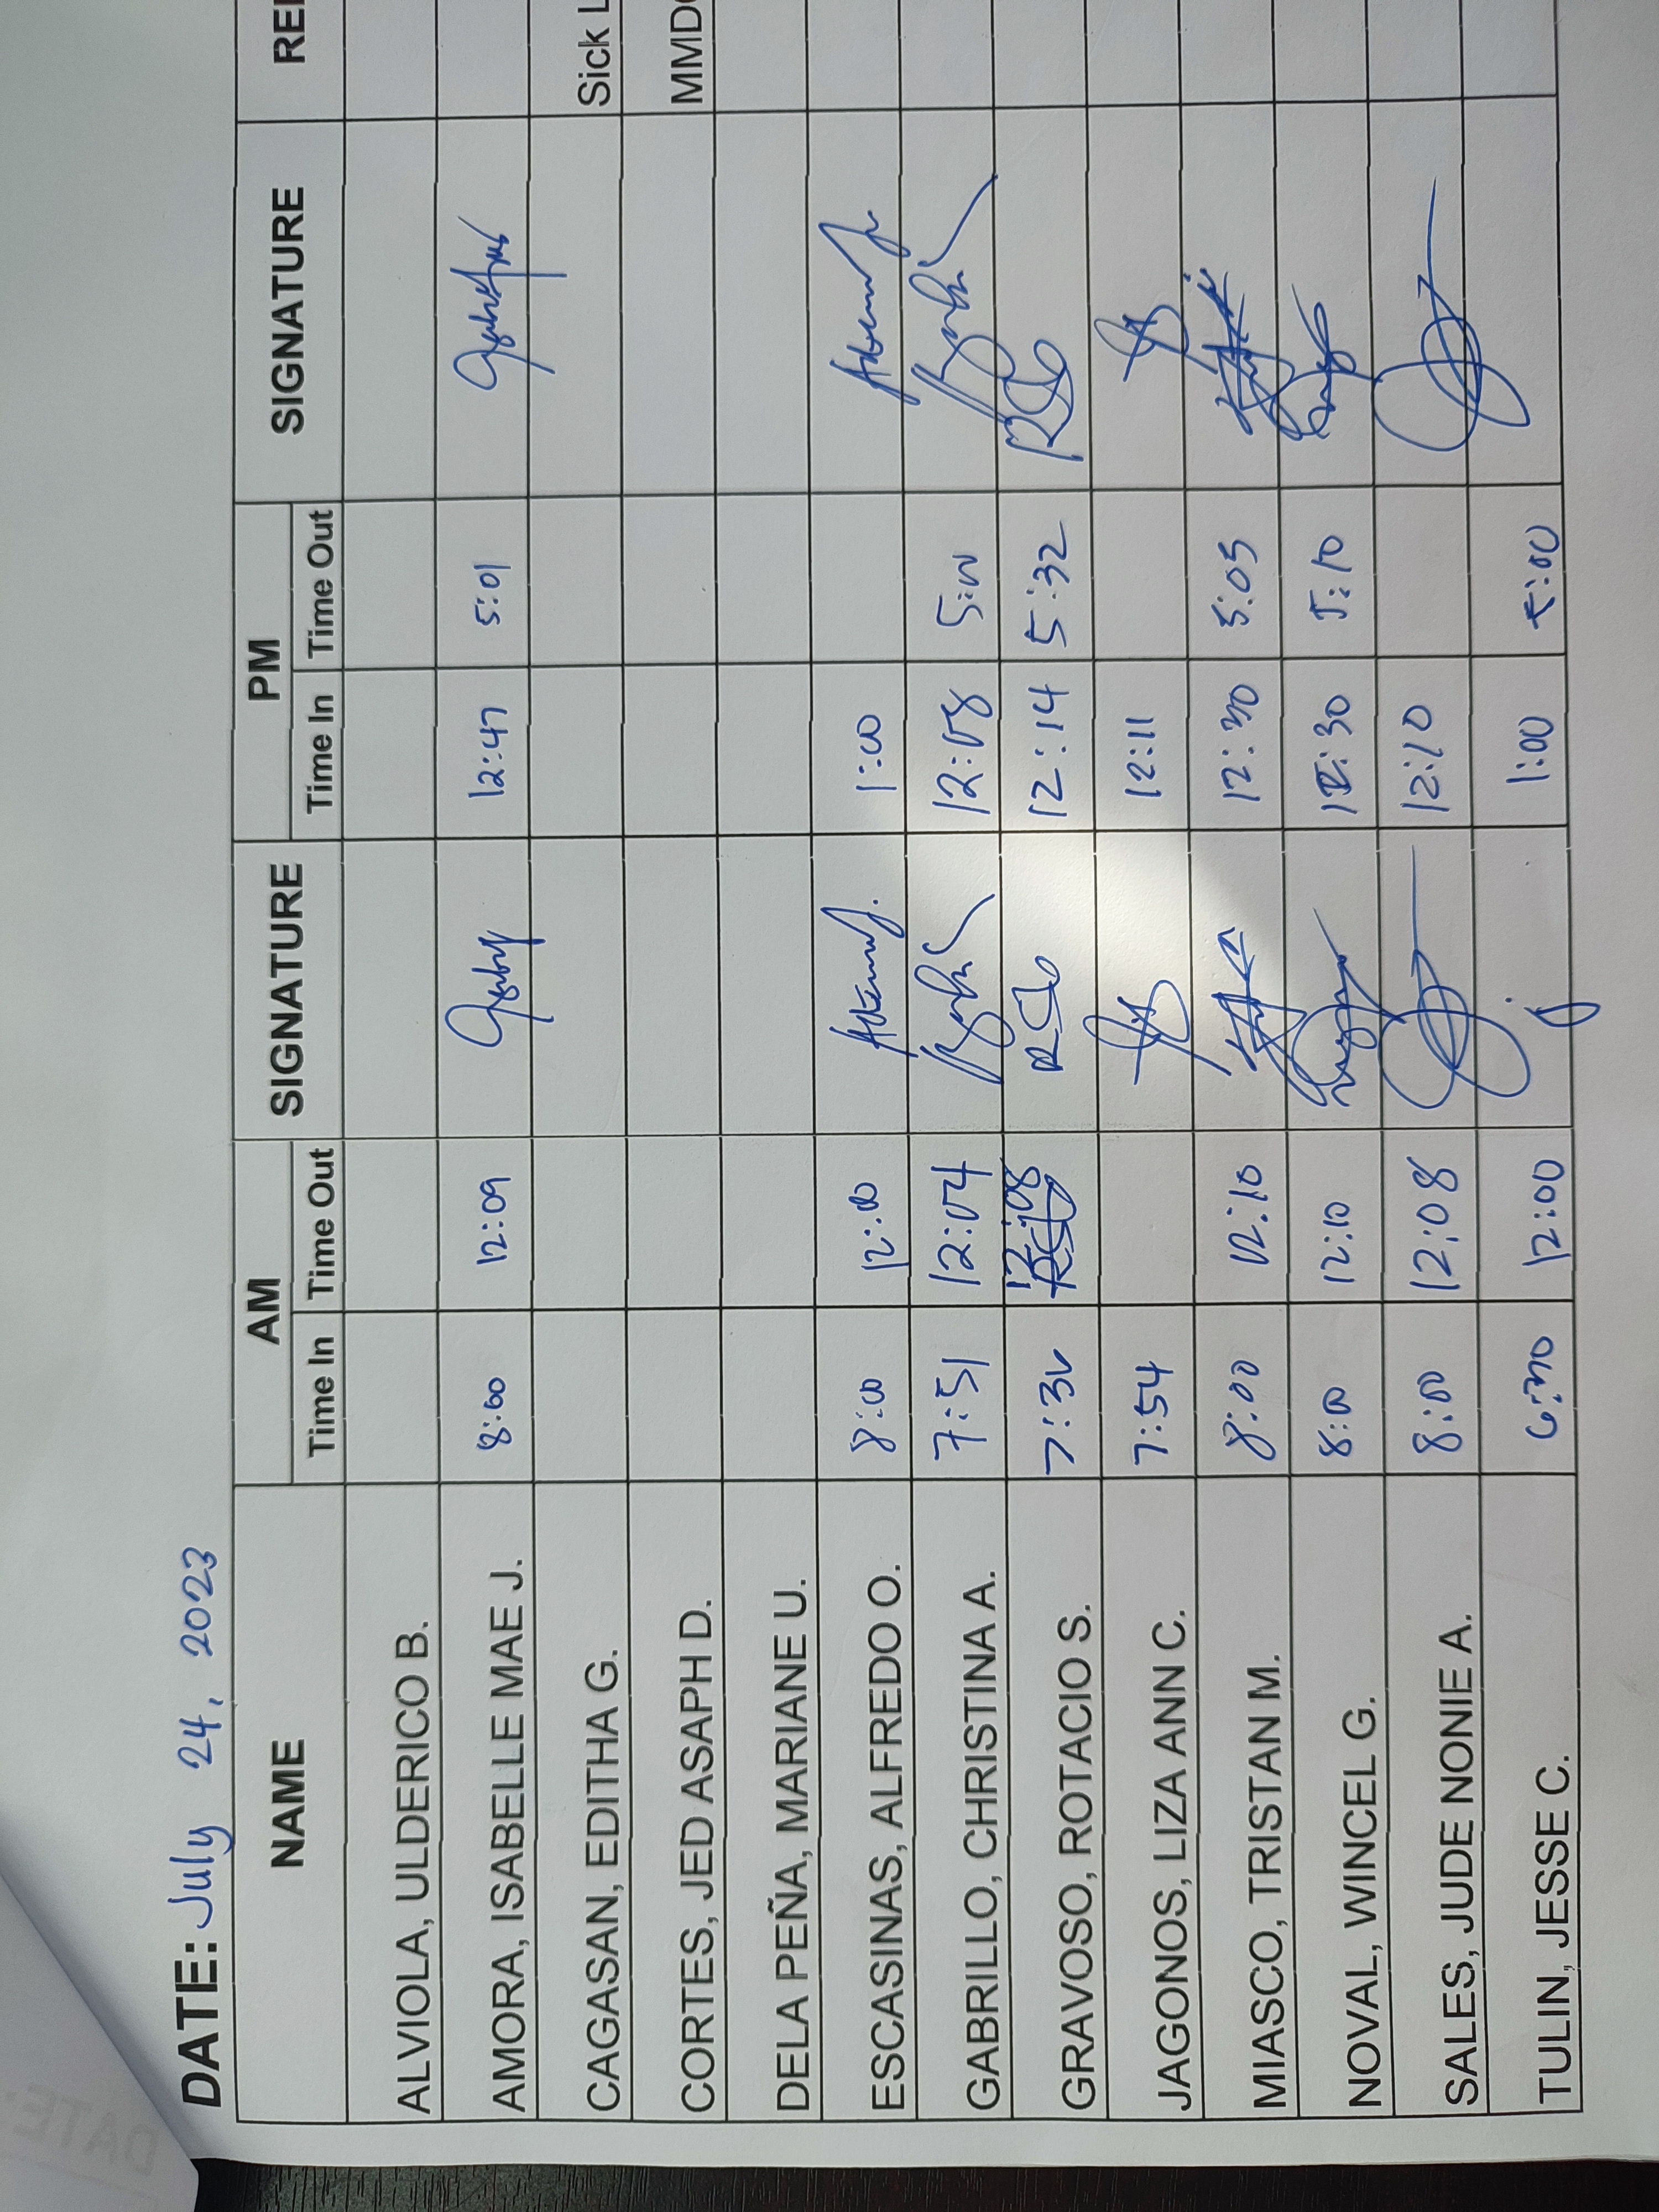 DATE: July 24, 2023
NAME AM SIGNATURE PM SIGNATURE
Time In Time Out Time In Time Out
ALVIOLA, ULDERICO B.
AMORA, ISABELLE MAE J. 8:00 12:09 12:47 5:01
CAGASAN, EDITHA G. Sick
CORTES, JED ASAPH D.
DELA PEÑA, MARIANE U.
ESCASINAS, ALFREDO O. 8:00 12:00 1:00
GABRILLO, CHRISTINA A. 7:51 12:04 12:08 5:00
GRAVOSO, ROTACIO S. 7:30 12:08 12:14 5:32
JAGONOS, LIZA ANN C. 7:54 12:11
MIASCO, TRISTAN M. 8:00 12:10 12:30 5:05
NOVAL, WINCEL G. 8:00 12:10 12:30 5:10
SALES, JUDE NONIE A. 8:00 12:08 12:10
TULIN, JESSE C. 12:00 1:00 5:00